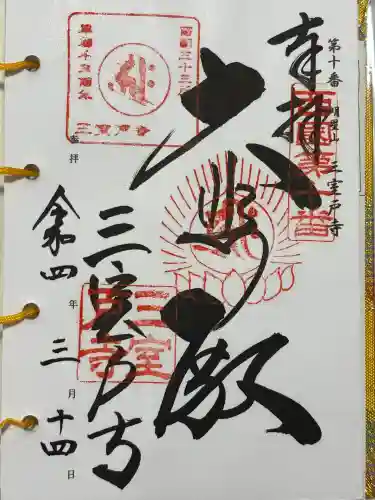 第十番 明星山 三室戸寺
奉拝
西国第十番
大悲殿
西国三十三
三室戸寺
三室戸寺
令和四年三月十四日